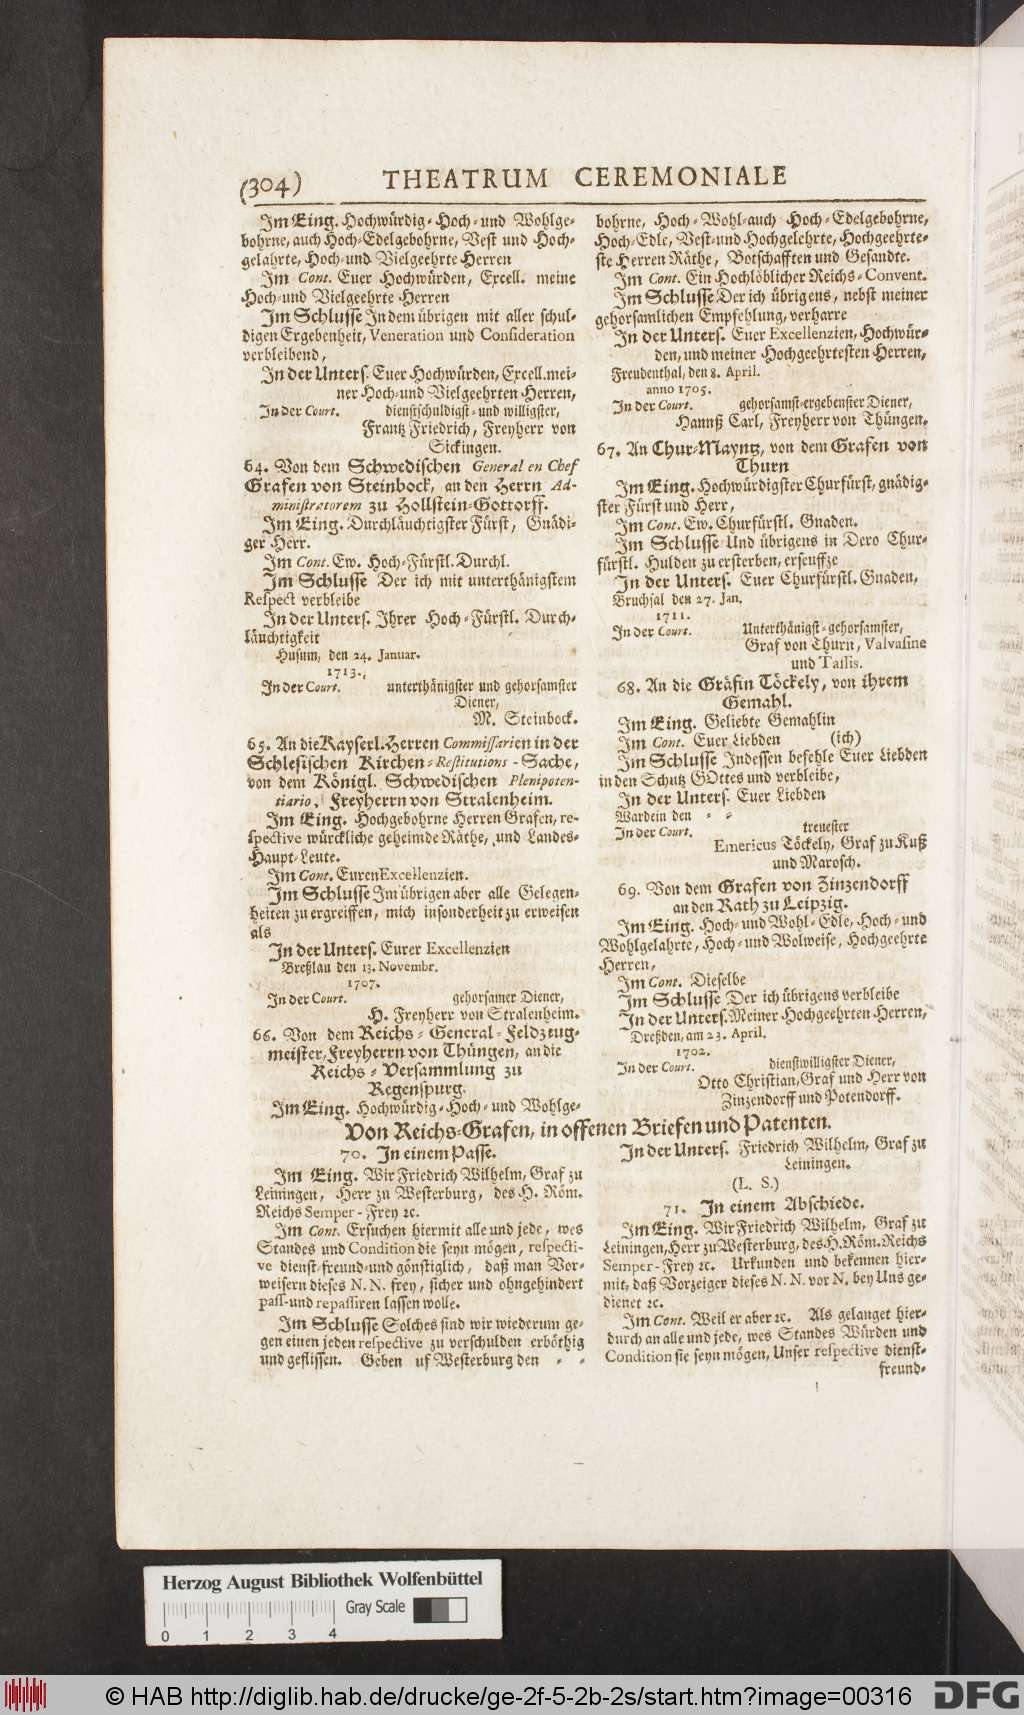 (304) THEATRUM CEREMONIALE
Im Eing. Hochwürdig-Hoch- und Wohlge-
bohrne, auch Hoch-Edelgebohrne, Vest und Hoch-
gelahrte, Hoch- und Vielgeehrte Herren
Im Cont. Euer Hochwürden, Excell. meine
Hoch- und Vielgeehrte Herren
Im Schlusse In dem übrigen mit aller schul-
digen Ergebenheit, Veneration und Consideration
verbleibend,
In der Unters. Euer Hochwürden, Excell. mei-
ner Hoch- und Vielgeehrten Herren,
In der Court. dienstschuldigst- und willigster,
Frantz Friedrich, Freyherr von
Sickingen.
64. Von dem Schwedischen General en Chef
Grafen von Steinbock, an den Herrn Ad-
ministratorem zu Hollstein-Gottorff.
Im Eing. Durchläuchtigster Fürst, Gnädi-
ger Herr.
Im Cont. Ew. Hoch-Fürstl. Durchl.
Im Schlusse Der ich mit unterthänigstem
Respect verbleibe
In der Unters. Ihrer Hoch-Fürstl. Durch-
läuchtigkeit
Husum, den 24. Januar.
1713.
In der Court. unterthänigster und gehorsamster
Diener,
M. Steinbock.
65. An die Kayserl. Herren Commissarien in der
Schlesischen Kirchen-Restitutions-Sache,
von dem Königl. Schwedischen Plenipoten-
tiario, Freyherrn von Stralenheim.
Im Eing. Hochgebohrne Herren Grafen, re-
spective würckliche geheimde Räthe, und Landes-
Haupt-Leute.
Im Cont. Euren Excellenzien.
Im Schlusse Im übrigen aber alle Gelegen-
heiten zu ergreiffen, mich insonderheit zu erweisen
als
In der Unters. Eurer Excellenzien
Breßlau den 13. Novembr.
1707.
In der Court. gehorsamer Diener,
H. Freyherr von Stralenheim.
66. Von dem Reichs-General-Feldzeug-
meister, Freyherrn von Thüngen, an die
Reichs-Versammlung zu
Regenspurg.
Im Eing. Hochwürdig-Hoch- und Wohlge-
bohrne, Hoch-Wohl-auch Hoch-Edelgebohrne,
Hoch-Edle, Vest-und Hochgelehrte, Hochgeehrte-
ste Herren Räthe, Botschafften und Gesandte.
Im Cont. Ein Hochlöblicher Reichs-Convent.
Im Schlusse Der ich übrigens, nebst meiner
gehorsamlichen Empfehlung, verharre
In der Unters. Euer Excellenzien, Hochwür-
den, und meiner Hochgeehrtesten Herren,
Freudenthal, den 8. April.
anno 1705.
In der Court. gehorsamst-ergebenster Diener,
Hannß Carl, Freyherr von Thüngen.
67. An Chur-Mayntz, von dem Grafen von
Thurn
Im Eing. Hochwürdigster Churfürst, gnädig-
ster Fürst und Herr,
Im Cont. Ew. Churfürstl. Gnaden.
Im Schlusse Und übrigens in Dero Chur-
fürstl. Hulden zu ersterben, erseuffze
In der Unters. Euer Churfürstl. Gnaden,
Bruchsal den 27. Jan.
1711.
In der Court. Unterthänigst-gehorsamster,
Graf von Thurn, Valvasine
und Tassis.
68. An die Gräfin Töckely, von ihrem
Gemahl.
Im Eing. Geliebte Gemahlin
Im Cont. Euer Liebden (ich)
Im Schlusse Indessen befehle Euer Liebden
in den Schutz GOttes und verbleibe,
In der Unters. Euer Liebden
Wardein den - -
In der Court. treuester
Emericus Töckely, Graf zu Kuß
und Marosch.
69. Von dem Grafen von Zinzendorff
an den Rath zu Leipzig.
Im Eing. Hoch- und Wohl-Edle, Hoch- und
Wohlgelahrte, Hoch- und Wolweise, Hochgeehrte
Herren,
Im Cont. Dieselbe
Im Schlusse Der ich übrigens verbleibe
In der Unters. Meiner Hochgeehrten Herren,
Dreßden, am 23. April.
1702.
In der Court. dienstwilligster Diener,
Otto Christian, Graf und Herr von
Zinzendorff und Potendorff.
Von Reichs-Grafen, in offenen Briefen und Patenten.
70. In einem Passe.
Im Eing. Wir Friedrich Wilhelm, Graf zu
Leiningen, Herr zu Westerburg, des H. Röm.
Reichs Semper-Frey ꝛc.
Im Cont. Ersuchen hiermit alle und jede, wes
Standes und Condition die seyn mögen, respecti-
ve dienst-freund-und gönstiglich, daß man Vor-
weisern dieses N. N. frey, sicher und ohngehindert
pass-und repassiren lassen wolle.
Im Schlusse Solches sind wir wiederum ge-
gen einen jeden respective zu verschulden erböthig
und geflissen. Geben uf Westerburg den - -
In der Unters. Friedrich Wilhelm, Graf zu
Leiningen.
(L. S.)
71. In einem Abschiede.
Im Eing. Wir Friedrich Wilhelm, Graf zu
Leiningen, Herr zu Westerburg, des H. Röm. Reichs
Semper-Frey ꝛc. Urkunden und bekennen hier-
mit, daß Vorzeiger dieses N. N. vor N. bey Uns ge-
dienet ꝛc.
Im Cont. Weil er aber ꝛc. Als gelanget hier-
durch an alle und jede, wes Standes Würden und
Condition sie seyn mögen, Unser respective dienst-
freund-
Herzog August Bibliothek Wolfenbüttel
Gray Scale
0 1 2 3 4
© HAB http://diglib.hab.de/drucke/ge-2f-5-2b-2s/start.htm?image=00316 DFG